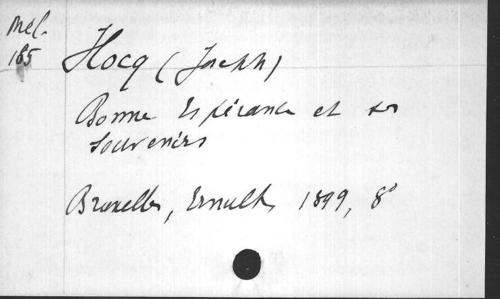 Mel.
185
Hocq (Joseph)
Bonne Espérance et ses
souvenirs
Bruxelles, Ernult, 1899, 8°